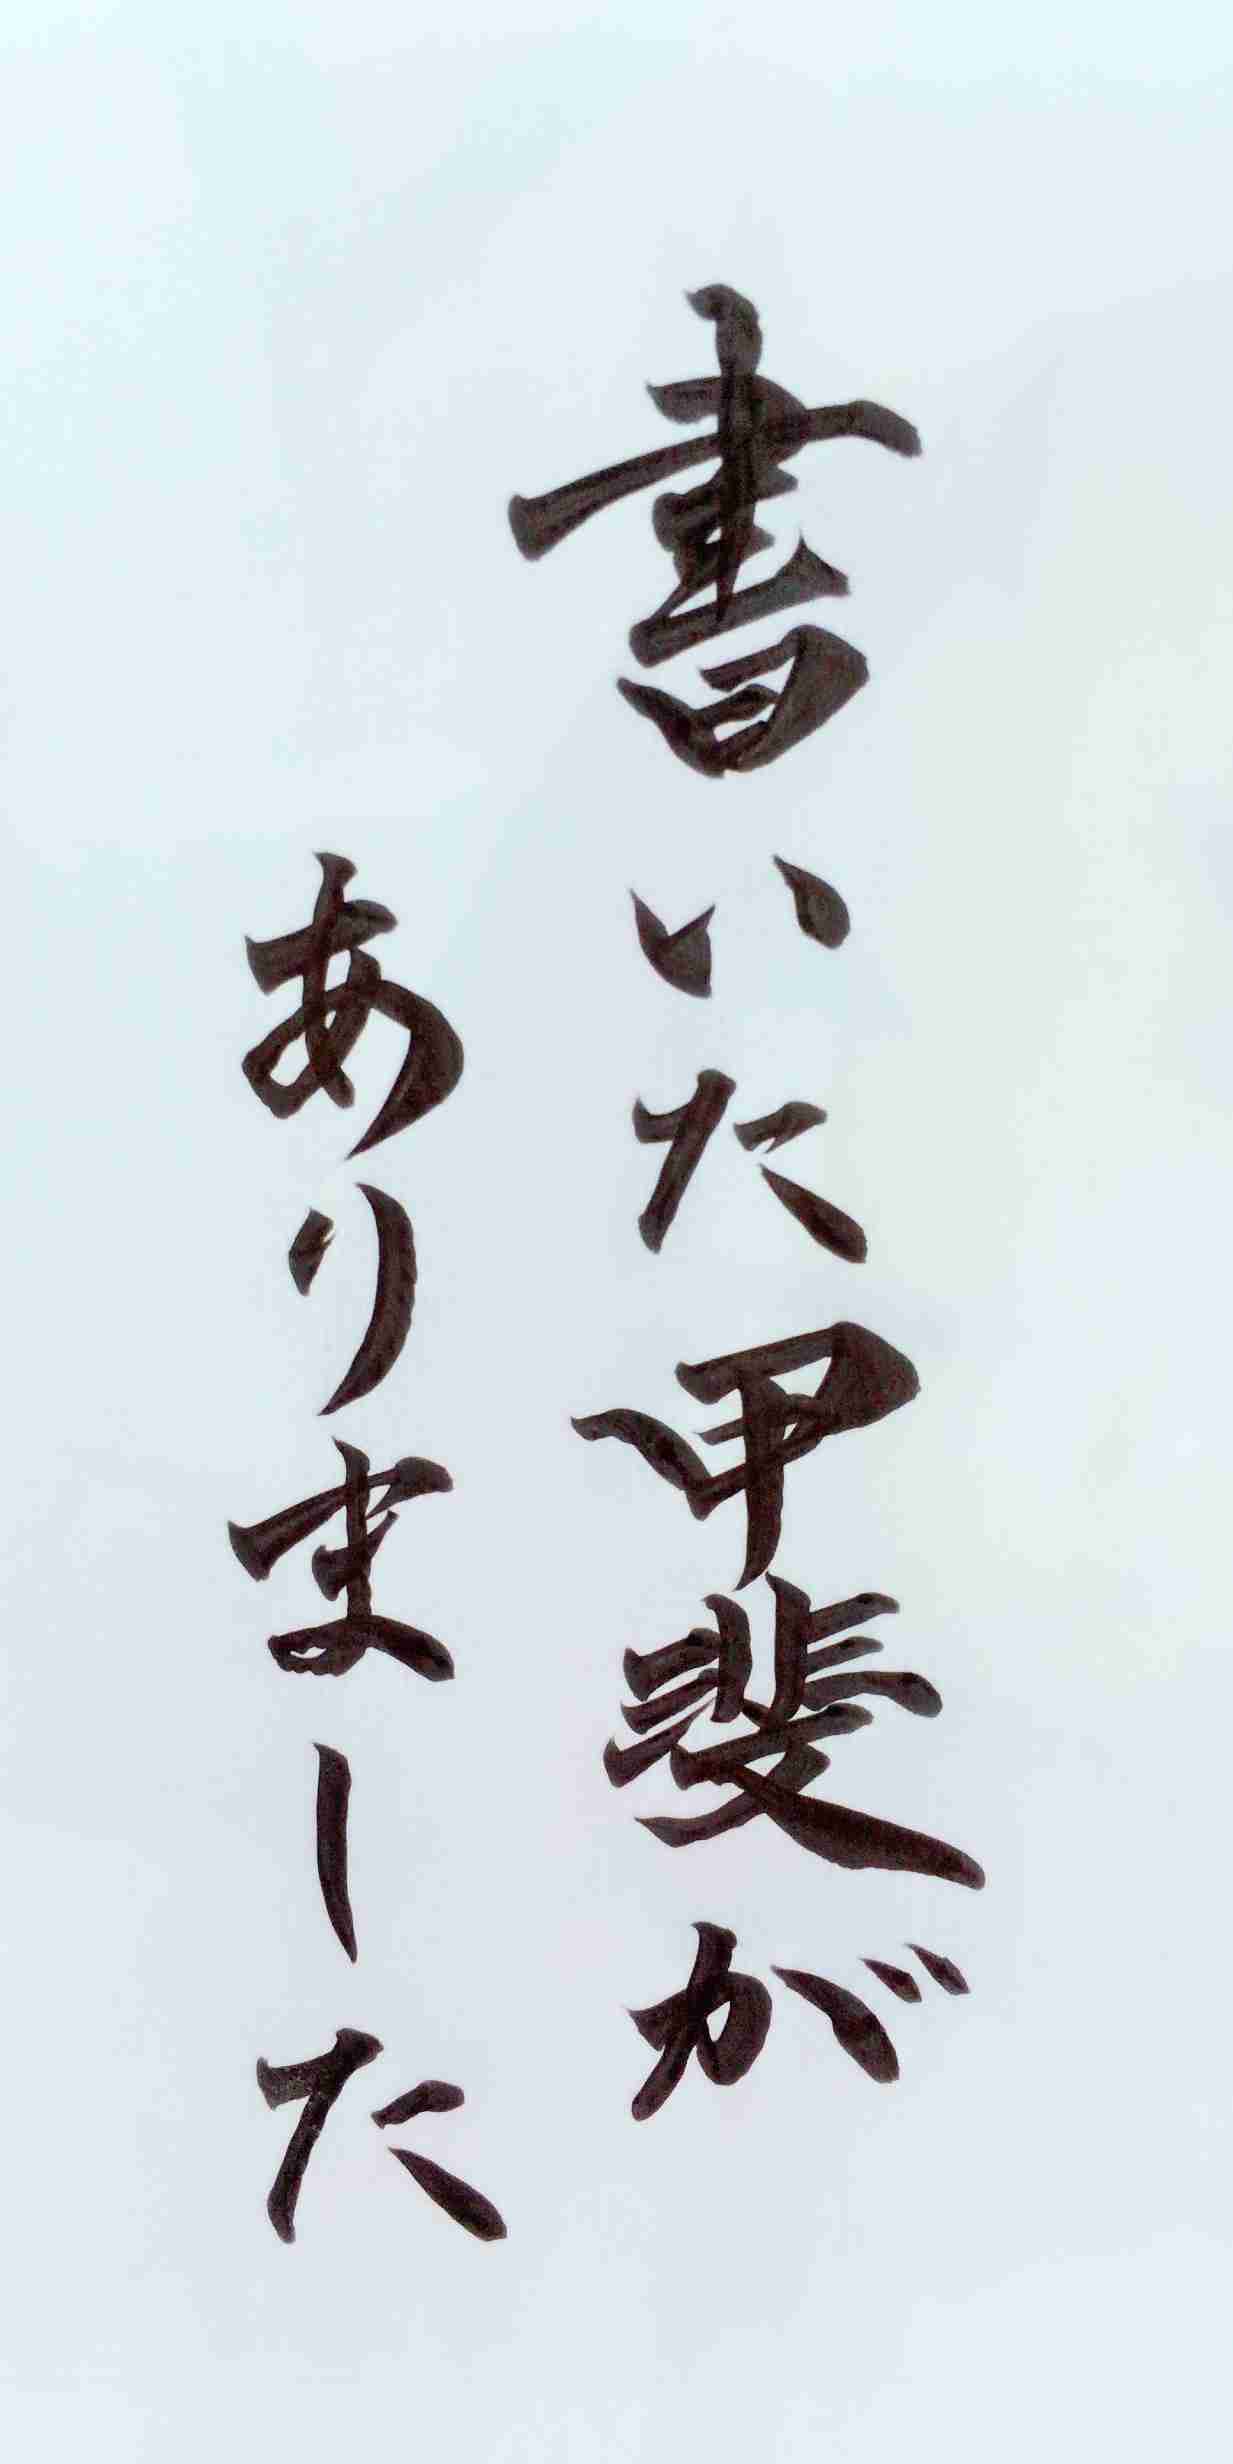 書いた甲斐が
ありました